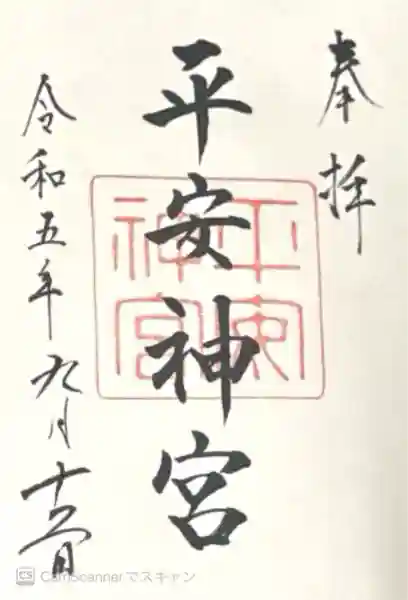 奉拝
平安神宮
平安
神宮
令和五年九月十日
CS CamScanner でスキャン